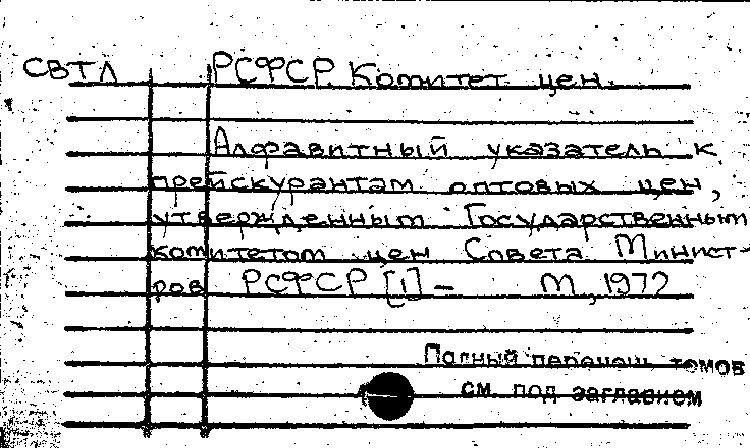 СВТЛ РСФСР. Комитет цен.
Алфавитный указатель к
прейскурантам оптовых цен,
утвержденным Государственным
комитетом цен Совета Минист-
ров РСФСР [1] – М, 1972
Полный перечень томов
см. под заглавием